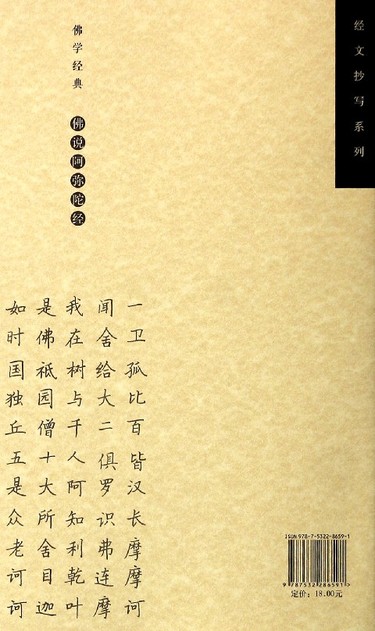 经文抄写系列
佛学经典
佛说阿弥陀经
如是我闻一
时佛在舍卫
国祇树给孤
独园与大比
丘僧千二百
五十人俱皆
是大阿罗汉
众所知识长
老舍利弗摩
诃目乾连摩
诃迦叶摩诃
ISBN 978-7-5322-8659-1
9 787532 286591 >
定价：18.00元